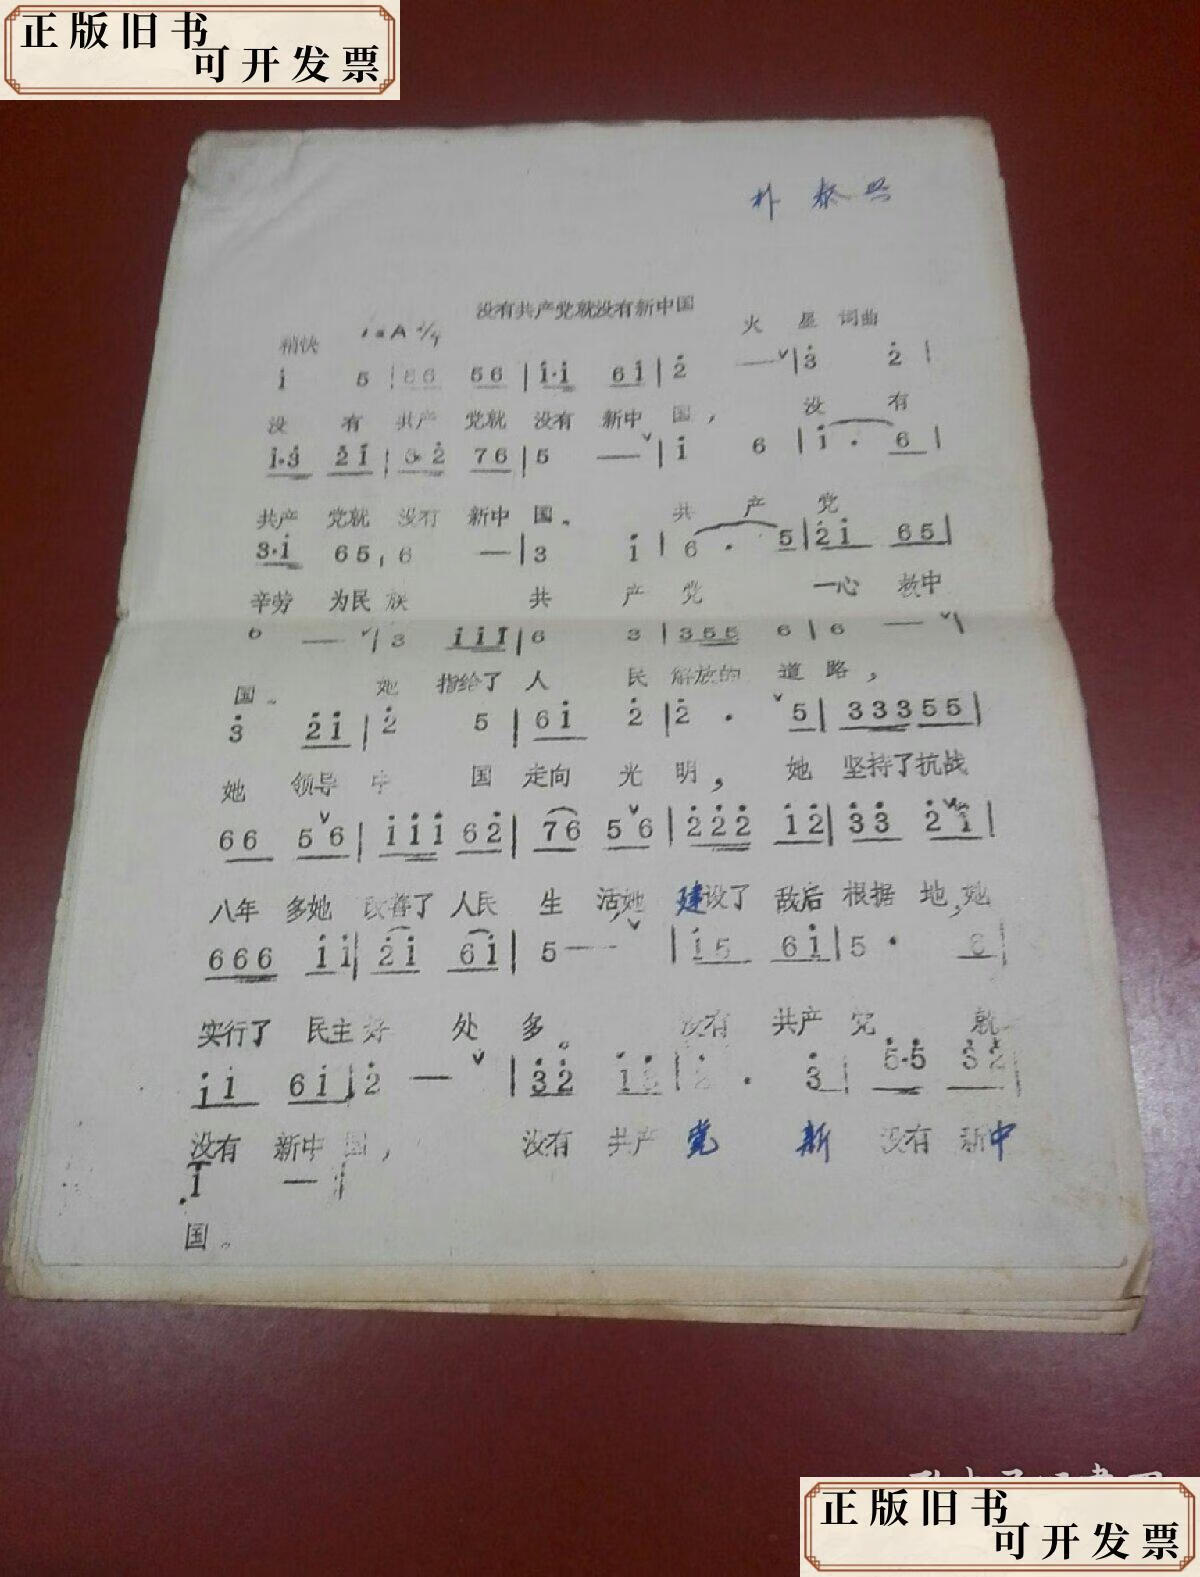 正版旧书
可开发票
朴泰兴
没有共产党就没有新中国
稍快 1=A 2/4 火星 词曲
i 5 | 56 56 | i·i 6i | 2̇ — ˅ | 3̇ 2̇ |
没 有 共产 党就 没有 新中 国, 没 有
i·3̇ 2̇i | 6·2̇ 76 | 5 — ˅ | i 6 | i · 6 |
共产 党就 没有 新中 国。 共 产 党
3·i 65 | 6 — | 3 i | 6 · 5 | 2̇i 65 |
辛劳 为民 族 共 产 党 一心 救中
6 — ˅ | 3 iii | 6 3 | 355 6 | 6 — ˅ |
国。 她 指给了 人 民 解放的 道 路,
3̇ 2̇i | 2̇ 5 | 6i 2̇ | 2̇ · ˅ 5 | 333 55 |
她 领导 中 国 走向 光 明, 她 坚持了 抗战
66 5˅6 | iii 62̇ | 76 5˅6 | 2̇2̇2̇ i2̇ | 3̇3̇ 2̇˅i |
八年 多她 改善了 人民 生 活,她 建设了 敌后 根据 地,她
666 ii | 2̇i 6i | 5 — ˅ | i5 6i | 5 · 6 |
实行了 民主 好 处 多。 没有 共产 党 就
ii 6i | 2̇ — ˅ | 3̇2̇ i | 2̇ · 3̇ | 5̇·5̇ 3̇2̇ |
没有 新中 国, 没有 共产 党 新 没有 新中
i — |
国。
正版旧书
可开发票